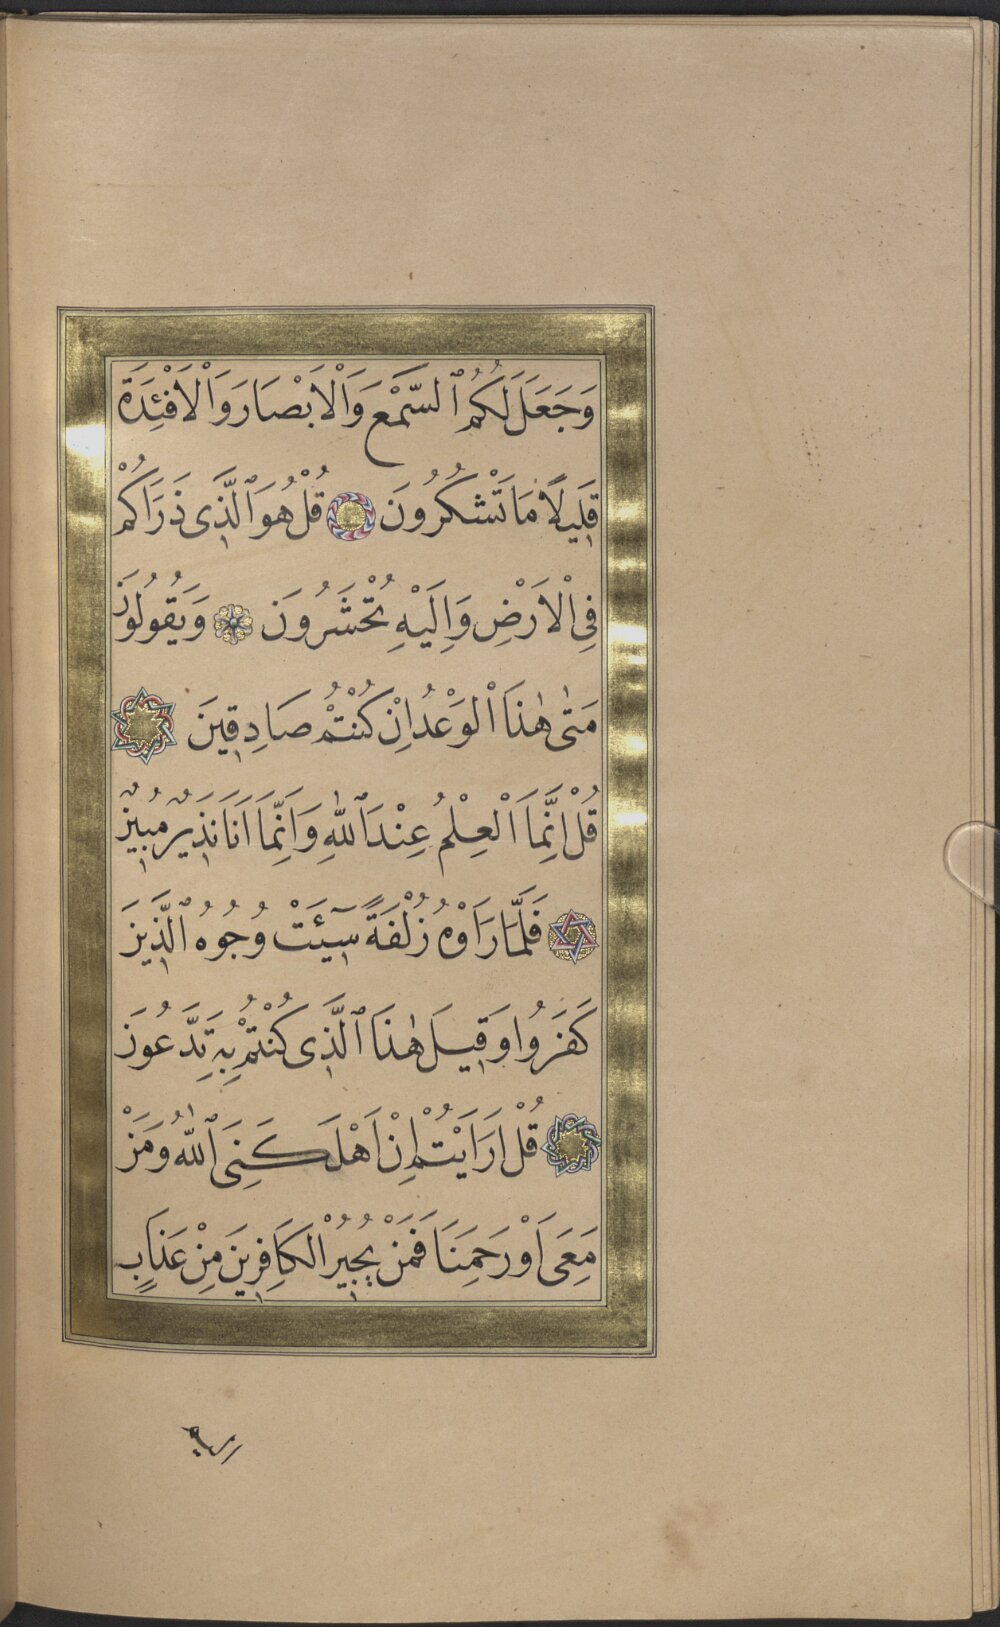 وَجَعَلَ لَكُمُ ٱلسَّمْعَ وَٱلْاَبْصَارَ وَٱلْاَفْئِدَةَ
قَلِيلًا مَا تَشْكُرُونَ قُلْ هُوَ ٱلَّذِى ذَرَاَكُمْ
فِى ٱلْاَرْضِ وَاِلَيْهِ تُحْشَرُونَ وَيَقُولُونَ
مَتٰى هٰذَا ٱلْوَعْدُ اِنْ كُنْتُمْ صَادِقِينَ
قُلْ اِنَّمَا ٱلْعِلْمُ عِنْدَ ٱللّٰهِ وَاِنَّمَا اَنَا نَذِيرٌ مُبِينٌ
فَلَمَّا رَاَوْهُ زُلْفَةً سِٓيئَتْ وُجُوهُ ٱلَّذِينَ
كَفَرُوا وَقِيلَ هٰذَا ٱلَّذِى كُنْتُمْ بِهِ تَدَّعُونَ
قُلْ اَرَاَيْتُمْ اِنْ اَهْلَكَنِىَ ٱللّٰهُ وَمَنْ
مَعِىَ اَوْ رَحِمَنَا فَمَنْ يُجِيرُ ٱلْكَافِرِينَ مِنْ عَذَابٍ